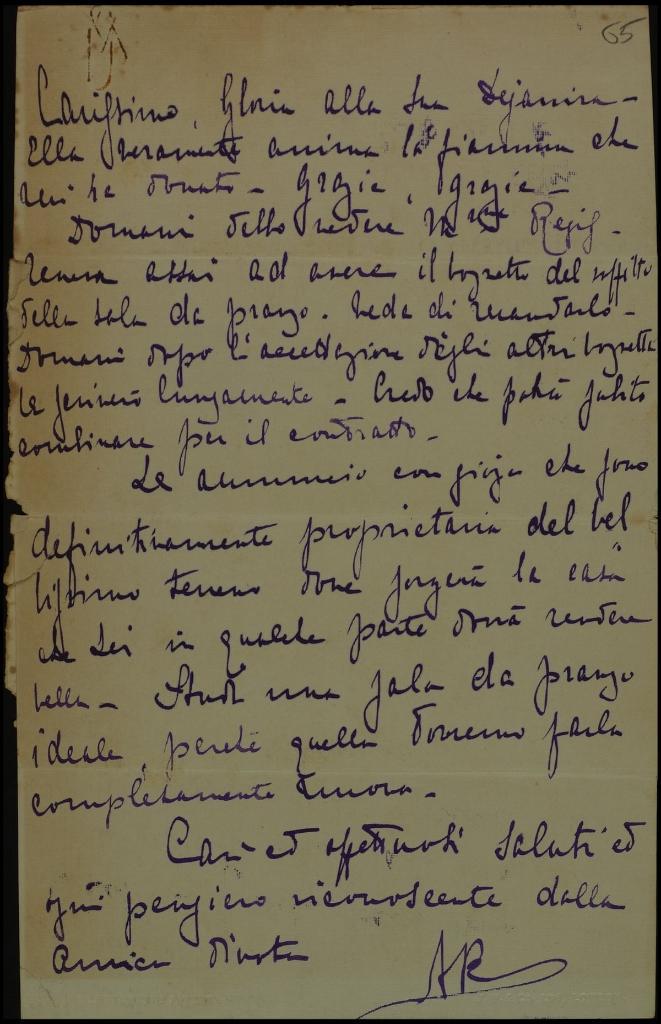 65
Carissimo, Gloria alla sua Dejanira -
Ella veramente anima la fiamma che
Lei le ha donato - Grazie, grazie -
Domani dello vedere
assai ad avere il bozzetto del soffitto
della sala da pranzo. Veda di mandarlo -
Domani dopo l'accettazione degli altri bozzetti
Le scriverò lungamente - Credo che potrà subito
combinare per il contratto -
Le annuncio con gioja che sono
definitivamente proprietaria del bel
lissimo terreno dove sorgerà la casa
che Lei in qualche parte dovrà rendere
bella - Studi una sala da pranzo
ideale, perchè quella dovremo farla
completamente
Cari ed affettuosi saluti ed
ogni pensiero riconoscente dalla
amica divota
AR